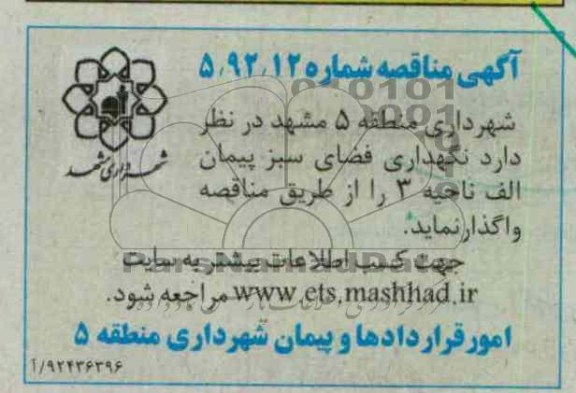 آگهی مناقصه شماره ۵٫۹۲٫۱۲
شهرداری منطقه ۵ مشهد در نظر
دارد نگهداری فضای سبز پیمان
الف ناحیه ۳ را از طریق مناقصه
واگذار نماید.
جهت کسب اطلاعات بیشتر به سایت
www.ets.mashhad.ir مراجعه شود.
امور قراردادها و پیمان شهرداری منطقه ۵
۱/۹۲۴۳۶۳۹۶
شهرداری مشهد